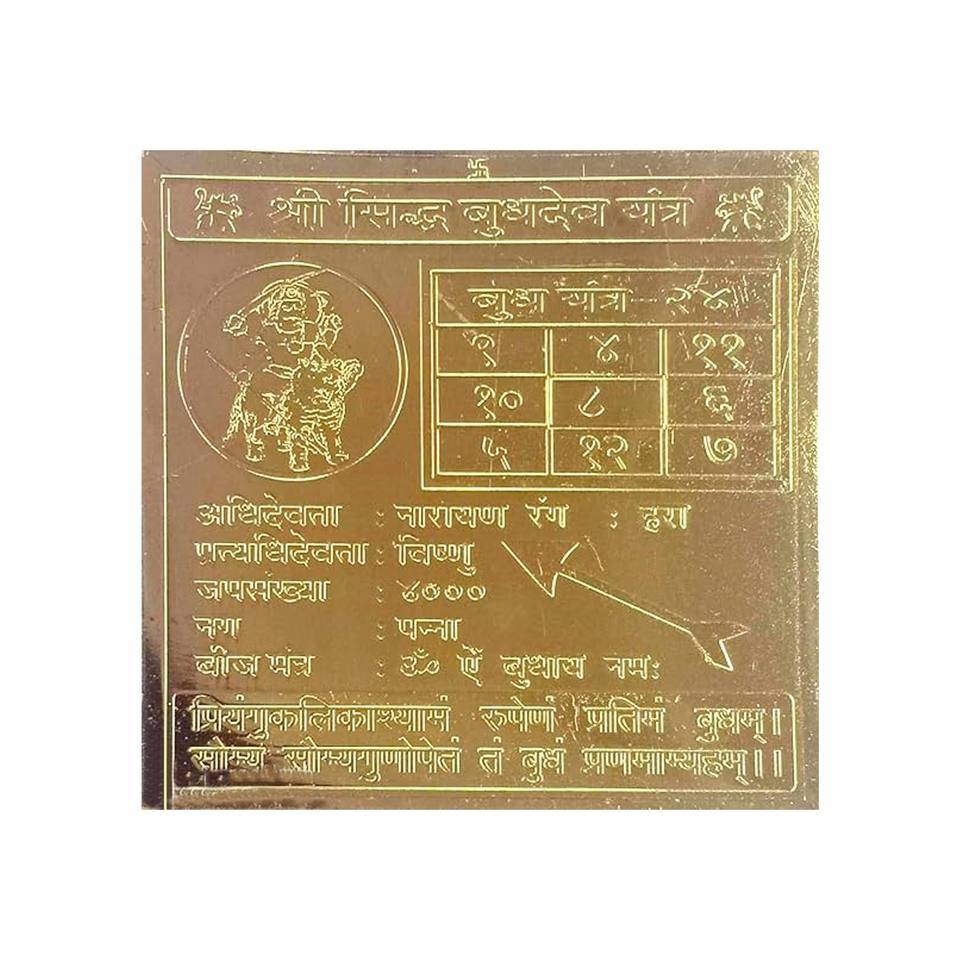 श्री सिद्ध बुधदेव यंत्र
बुध यंत्र २४
९ ४ ११
१० ८ ६
५ १२ ७
अधिदेवता : नारायण रंग : हरा
प्रत्यधिदेवता : विष्णु
जपसंख्या : ४०००
नग : पन्ना
बीज मंत्र : ॐ ऐं बुधाय नमः
प्रियंगुकलिकाश्यामं रुपेणं प्रतिमं बुधम्।
सोम्यं सोम्यगुणोपेतं तं बुधं प्रणमाम्यहम्।।